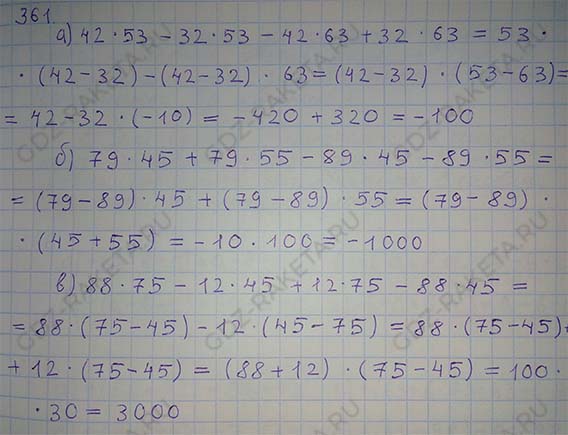 361.
а) 42 · 53 – 32 · 53 – 42 · 63 + 32 · 63 = 53 ·
· (42 – 32) – (42 – 32) · 63 = (42 – 32) · (53 – 63) =
= 42 – 32 · (–10) = –420 + 320 = –100
б) 79 · 45 + 79 · 55 – 89 · 45 – 89 · 55 =
= (79 – 89) · 45 + (79 – 89) · 55 = (79 – 89) ·
· (45 + 55) = –10 · 100 = –1000
в) 88 · 75 – 12 · 45 + 12 · 75 – 88 · 45 =
= 88 · (75 – 45) – 12 · (45 – 75) = 88 · (75 – 45) +
+ 12 · (75 – 45) = (88 + 12) · (75 – 45) = 100 ·
· 30 = 3000
GDZ-RAKETA.RU